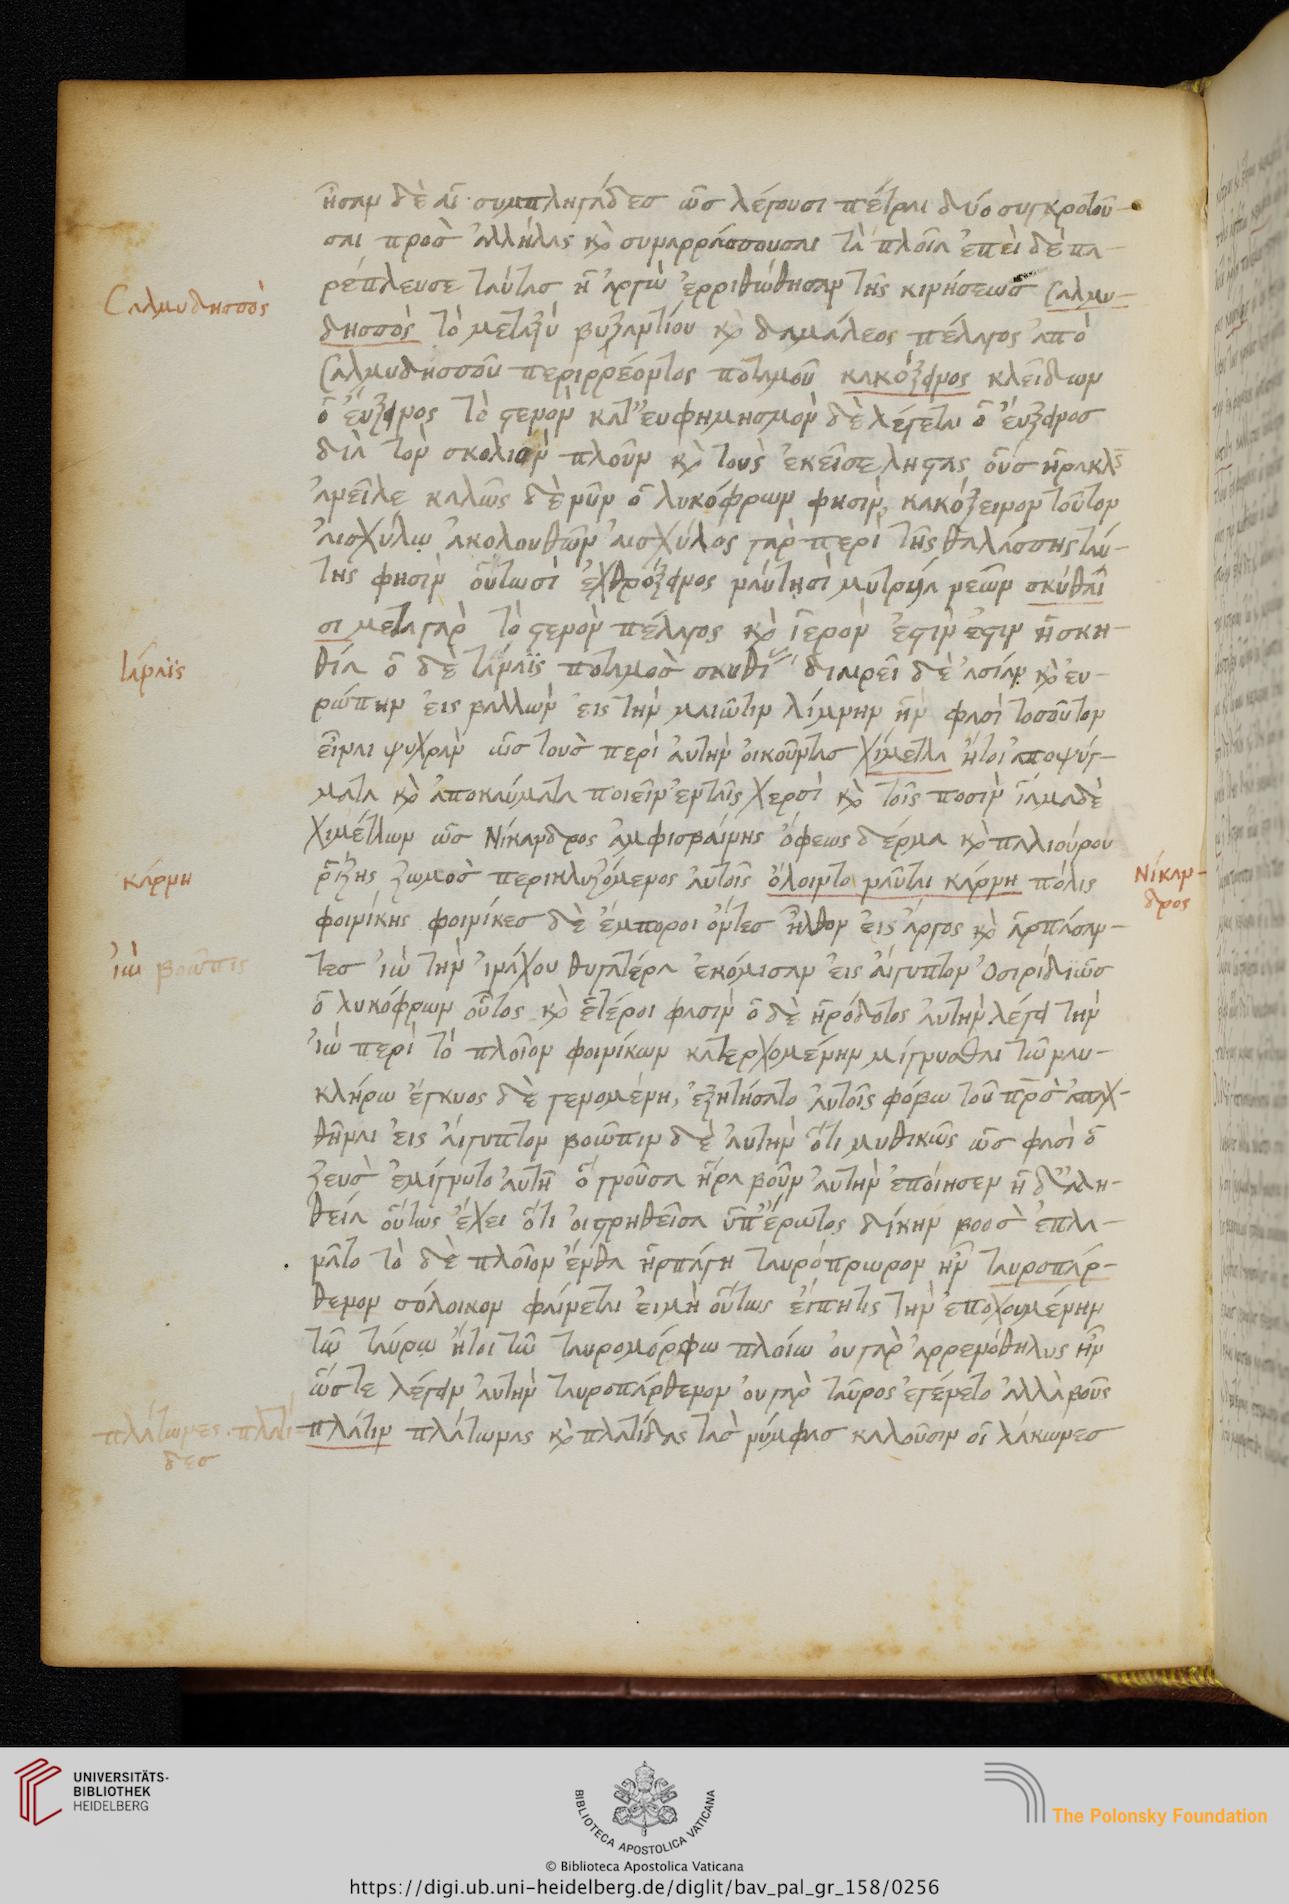 Σαλμυδησσὸς
τάναϊς
κάρνη
ἰὼ βοῶπις
πλάτωνες. πλατί-
δες
Νίκαν-
δρος
ἦσαν δὲ αἱ συμπληγάδες ὥς λέγουσι πέτραι δύο συγκροτοῦ-
σαι προς ἀλλήλας κ συμαρράσσουσαι τὰ πλοῖα ἐπεὶ δὲ πα-
ρέπλευσε ταύτας ἡ ἀργὼ ἐρριθώθησαν τῆς κινήσεως Σαλμυ-
δησσὸς τὸ μεταξύ βυζαντίου κ δαμάλεος πέλαγος ἀπὸ
Σαλμυδησσοῦ περιρρέοντος ποταμοῦ κακόξεινος κλείδων
ὁ εὔξεινος τὸ στενὸν κατ' ευφημησμὸν δὲ λέγεται ὁ εὔξεινος
διὰ τὸν σκολιὸν πλοῦν κ τοὺς ἐκεῖσε ληστας οὓς ἡρακλῆς
ἀνεῖλε καλῶς δὲ νῦν ὁ λυκόφρων φησὶν, κακόξεινον τοῦτον
αἰσχύλω ἀκολουθῶν αἰσχύλος γὰρ περὶ τῆς θαλάσσης ταύ-
της φησὶν οὕτωσὶ ἐχθρόξεινος ναύτησὶ μυτρυιὰ νεῶν σκύθαι
σι μετα γὰρ τὸ στενὸν πέλαγος κ ἱερὸν ἐστὶν ἐστιν ἡ σκη-
θία ὁ δὲ τάναϊς ποταμὸς διαιρεῖ δὲ ἀσίαν κ ευ-
ρώπην εἰς βαλλων εἰς τὴν μαιῶτιν λίμνην ἣν φασὶ τοσοῦτον
εἶναι ψυχρὰν ὥς τοὺς περὶ αὐτὴν οἰκοῦντας χίμετλα ἤτοι ἀποψύγ-
ματα κ ἀποκαύματα ποιεῖν ἐνταῖς χερσὶ κ τοῖς ποσὶν ἴαμα δὲ
χιμέτλων ὥς Νίκανδρος ἀμφισβαίνης ὄφεως δέρμα κ παλιούρου
ῥίζης ζωμὸς περικλυζόμενος αὐτοῖς ὄλοιντο ναῦται κάρνη πόλις
φοινίκης φοινίκες δὲ ἔμποροι ὄντες ἦλθον εἰς ἄργος κ ἁρπάσαν-
τες ἰὼ τὴν ἰνάχου θυγατέρα ἐκόμισαν εἰς αἴγυπτον Ὀσιρίδι ὥς
ὁ λυκόφρων οὗτος κ ἕτέροι φασὶν ὁ δὲ ἡρόδοτος αὐτὴν λέγει τὴν
ἰὼ περὶ τὸ πλοῖον φοινίκων κατερχομένην μίγνυσθαι τῶ ναυ-
κλήρω ἔγκυος δὲ γενομένη, ἐζητήσατο αὐτοῖς φόβω τοῦ προς ἀπαχ-
θῆναι εἰς αἴγυπτον βοῶπιν δὲ αὐτὴν ὅτι μυθικῶς ὥς φασὶ ὁ
ζεὺς ἐμίγνυτο αὐτῆ ὃ γνοῦσα ἥρα βοῦν αὐτὴν ἐποίησεν ἡ δ' αλη-
θεία οὕτως ἔχει ὅτι οἰστρηθεῖσα ὑπ' ἔρωτος δίκην βοὸς ἐπλα-
νᾶτο τὸ δὲ πλοῖον ἔνθα ἡρπάγη ταυρόπρωρον ἦν ταυροπάρ-
θενον σόλοικον φαίνεται εἰμὴ οὕτως εἴπητις τὴν ἐποχουμένην
τῶ ταύρω ἤτοι τῶ ταυρομόρφω πλοίω ου γὰρ ἀρρενόθηλυς ἦν
ὥστε λέγειν αὐτὴν ταυροπάρθενον οὐ γὰρ ταῦρος ἐγένετο ἀλλὰ βοῦς
πλάτιν πλάτωνας κ πλατίδας τὰς νύμφας καλοῦσιν οἱ λάκωνες
UNIVERSITÄTS-
BIBLIOTHEK
HEIDELBERG
BIBLIOTECA APOSTOLICA VATICANA
The Polonsky Foundation
© Biblioteca Apostolica Vaticana
https://digi.ub.uni-heidelberg.de/diglit/bav_pal_gr_158/0256